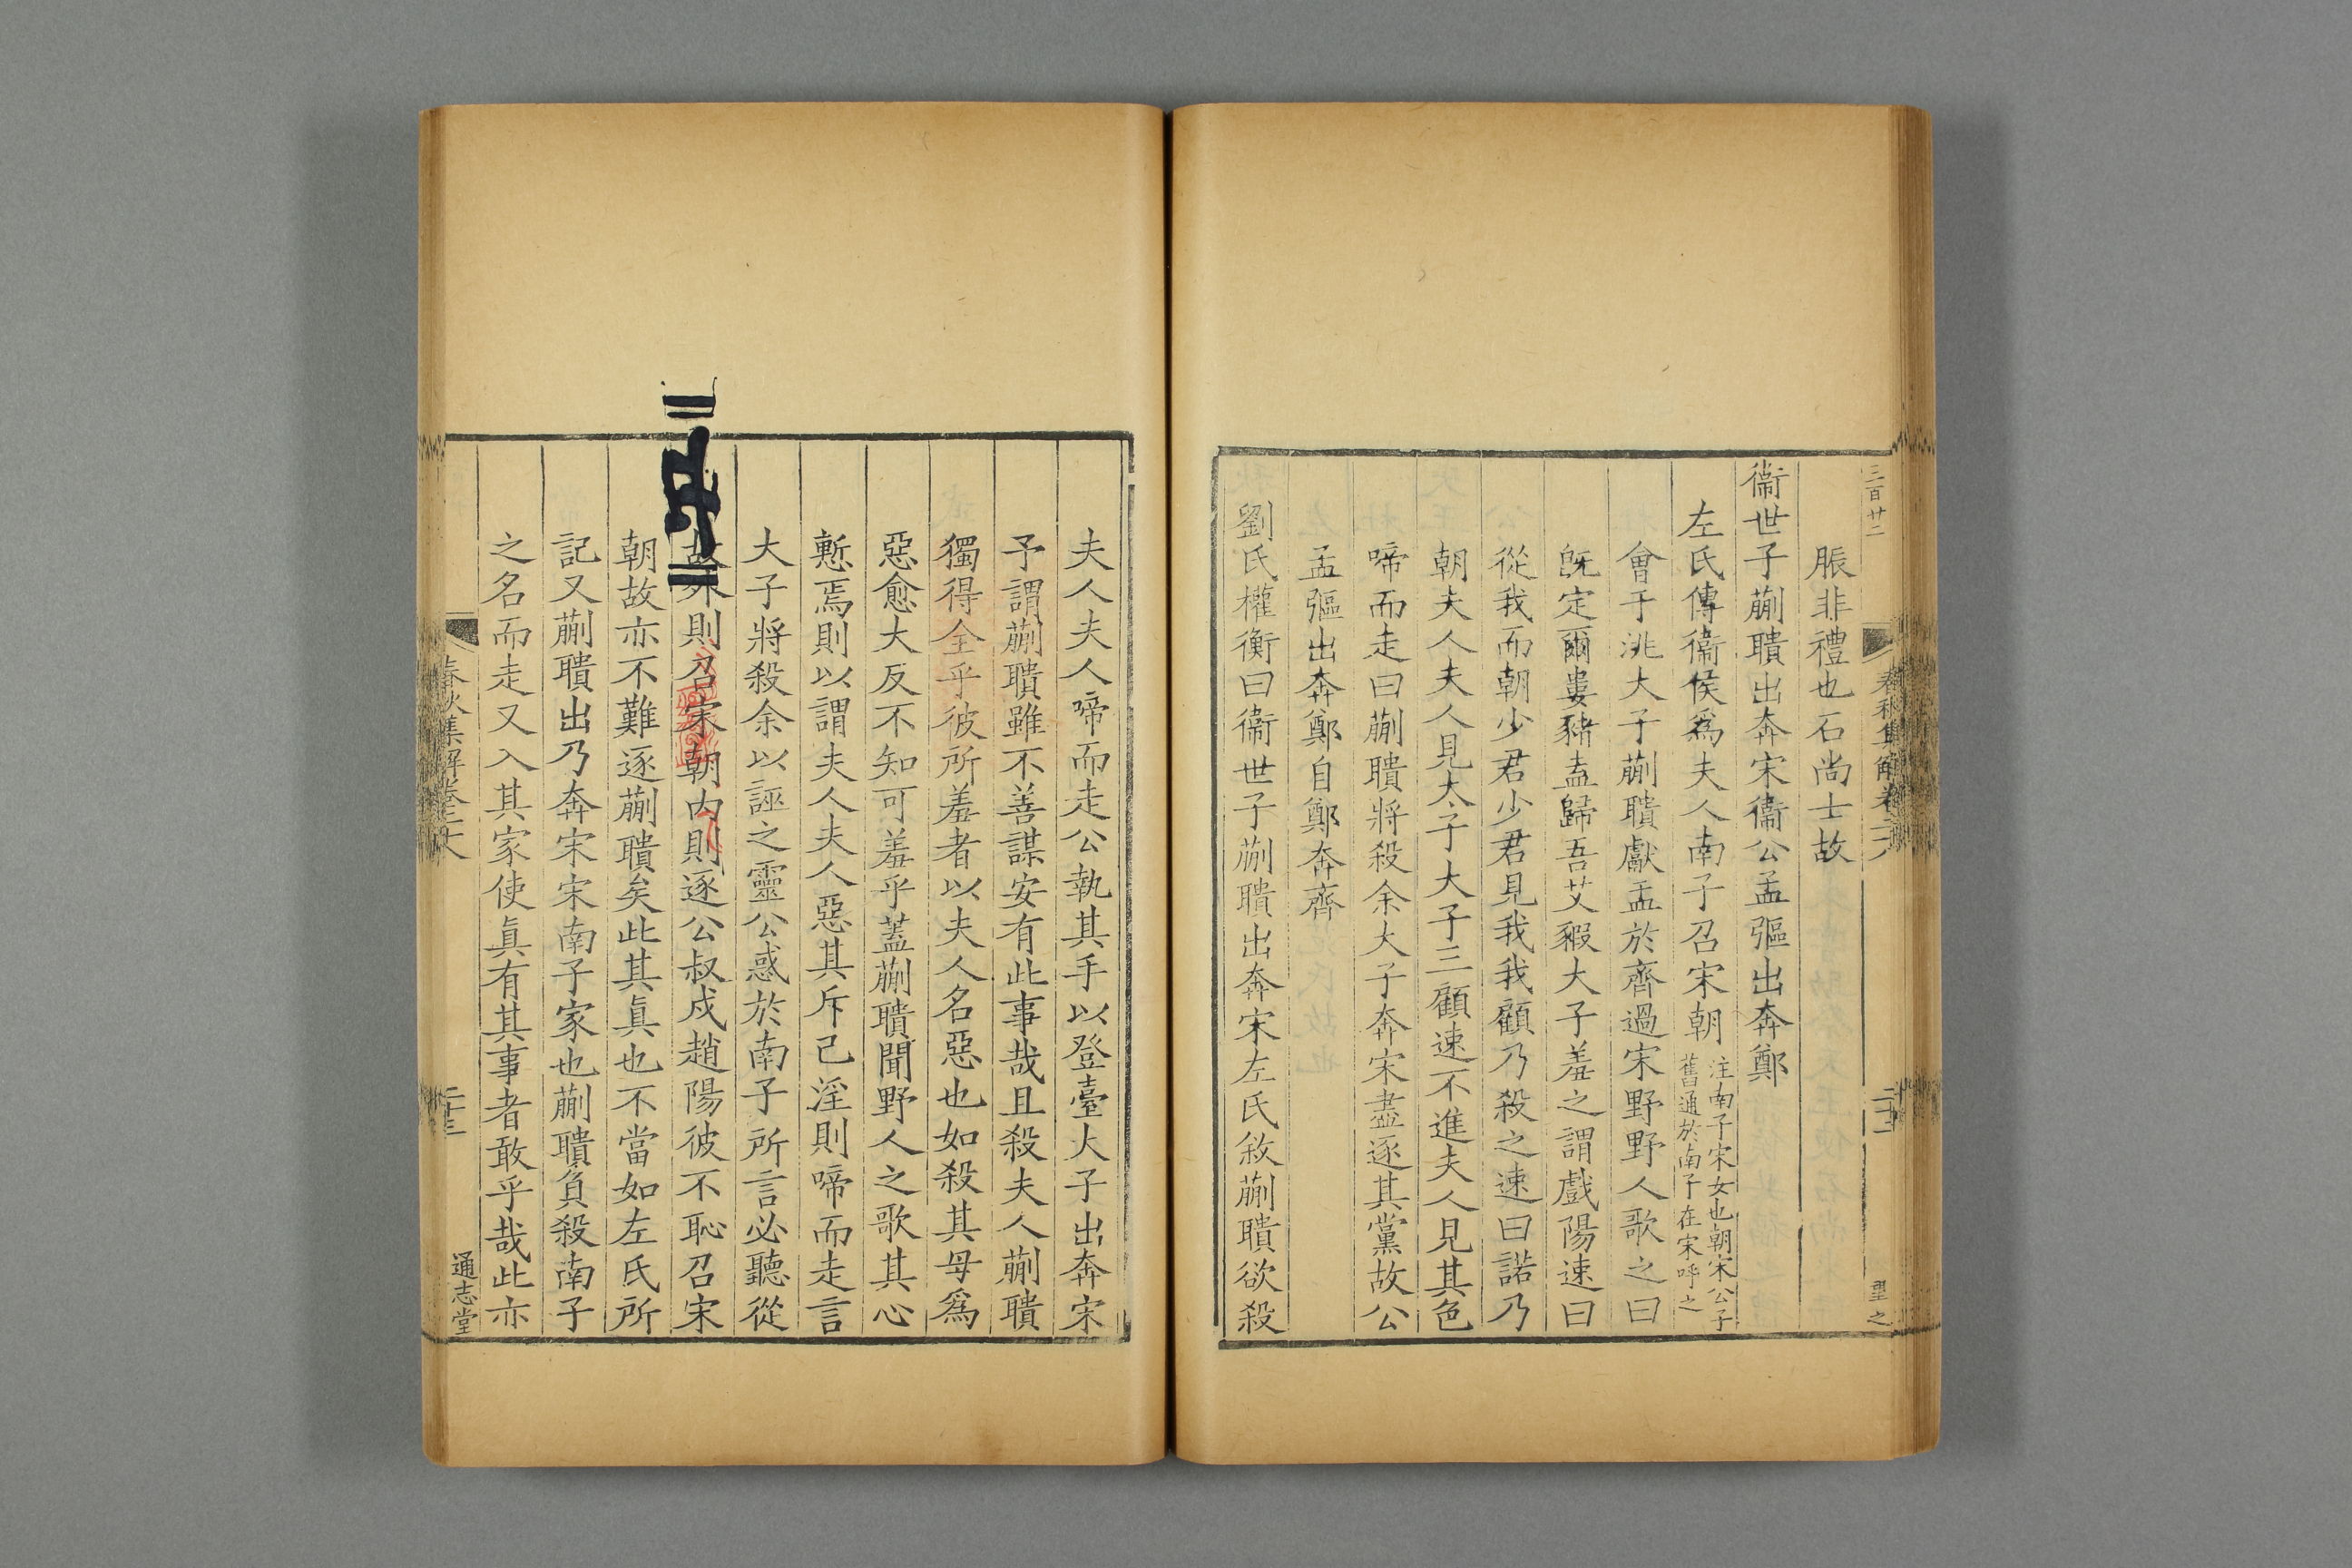 三百廿二
春秋集解卷二六
脤非禮也石尚士故
衞世子蒯聵出奔宋衞公孟彄出奔鄭
左氏傳衞侯爲夫人南子召宋朝注南子宋女也朝宋公子舊通於南子在宋呼之
會于洮大子蒯聵獻盂於齊過宋野野人歌之曰
旣定爾婁豬盍歸吾艾豭大子羞之謂戲陽速曰
從我而朝少君少君見我我顧乃殺之速曰諾乃
朝夫人夫人見大子大子三顧速不進夫人見其色
啼而走曰蒯聵將殺余大子奔宋盡逐其黨故公
孟彄出奔鄭自鄭奔齊
劉氏權衡曰衞世子蒯聵出奔宋左氏敘蒯聵欲殺
夫人夫人啼而走公執其手以登臺大子出奔宋
予謂蒯聵雖不善謀安有此事哉且殺夫人蒯聵
獨得全乎彼所羞者以夫人名惡也如殺其母爲
惡愈大反不知可羞乎蓋蒯聵聞野人之歌其心
慙焉則以謂夫人夫人惡其斥己淫則啼而走言
大子將殺余以誣之靈公惑於南子所言必聽從
故外則召宋朝內則逐公叔戍趙陽彼不恥召宋
朝故亦不難逐蒯聵矣此其眞也不當如左氏所
記又蒯聵出乃奔宋宋南子家也蒯聵負殺南子
之名而走又入其家使眞有其事者敢乎哉此亦
春秋集解卷二十六
二十三
通志堂